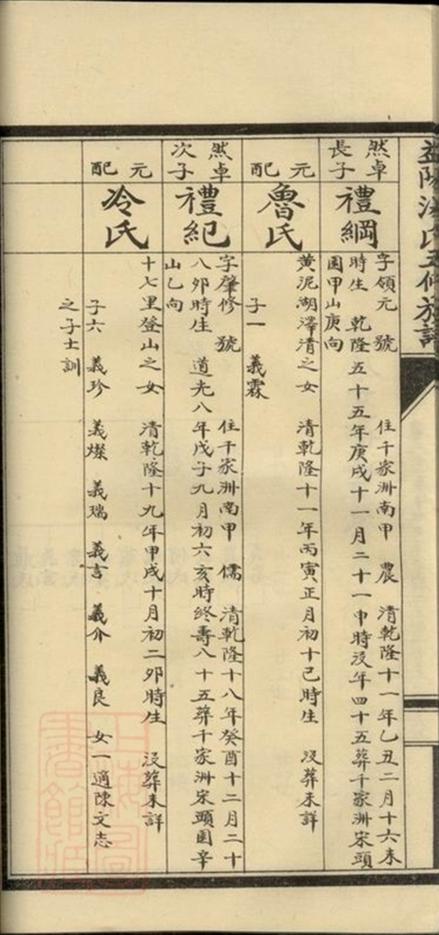 益陽洪氏五修族譜
然卓
長子
禮綱
字領元　號　住千家洲南甲　農　清乾隆十一年乙丑二月十六未
時生　乾隆五十五年庚戌十一月二十一申時沒年四十五葬千家洲宋頭
園甲山庚向
元配
魯氏
黃泥湖澤清之女　清乾隆十一年丙寅正月初十巳時生　沒葬未詳
子一　義霖
然卓
次子
禮紀
字肇修　號　住千家洲南甲　儒　清乾隆十八年癸酉十二月二十
八卯時生　道光八年戊子九月初六亥時終壽八十五葬千家洲宋頭園辛
山乙向
元配
冷氏
十七里登山之女　清乾隆十九年甲戌十月初二卯時生　沒葬未詳
子六　義珍　義燦　義瑞　義言　義介　義良　女一適陳文志
之子士訓